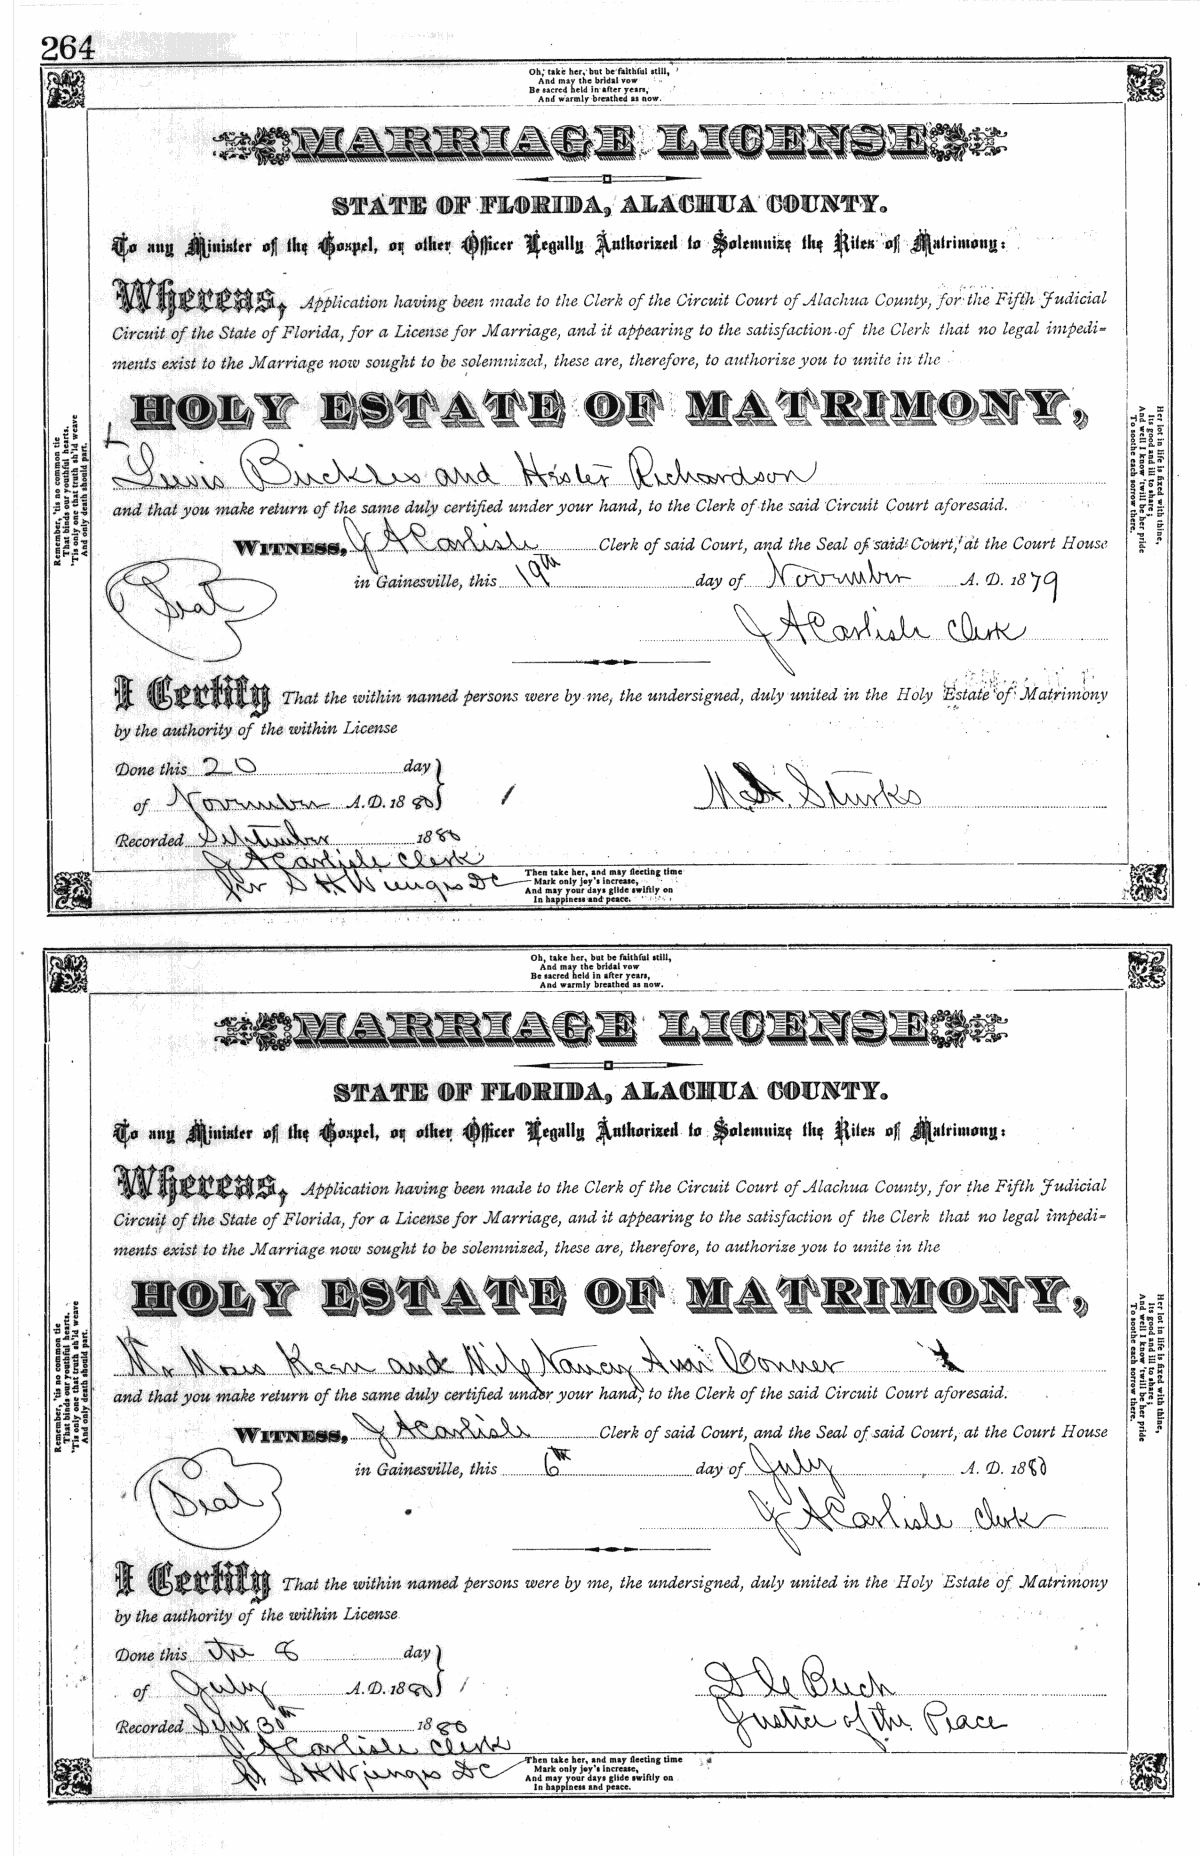 264
Oh, take her, but be faithful still,
And may the bridal vow
Be sacred held in after years,
And warmly breathed as now.
MARRIAGE LICENSE
STATE OF FLORIDA, ALACHUA COUNTY.
To any Minister of the Gospel, or other Officer Legally Authorized to Solemnize the Rites of Matrimony:
Whereas, Application having been made to the Clerk of the Circuit Court of Alachua County, for the Fifth Judicial
Circuit of the State of Florida, for a License for Marriage, and it appearing to the satisfaction of the Clerk that no legal impedi-
ments exist to the Marriage now sought to be solemnized, these are, therefore, to authorize you to unite in the
HOLY ESTATE OF MATRIMONY,
Lewis Buckles and Hester Richardson
and that you make return of the same duly certified under your hand, to the Clerk of the said Circuit Court aforesaid.
WITNESS, J A Carlisle Clerk of said Court, and the Seal of said Court, at the Court House
in Gainesville, this 19th day of November A. D. 1879
Seal
J A Carlisle Clerk
I Certify That the within named persons were by me, the undersigned, duly united in the Holy Estate of Matrimony
by the authority of the within License
Done this 20 day
of November A.D. 1880
M. A. Sturks
Recorded September 1880
J A Carlisle Clerk
per S H Wienges DC
Then take her, and may fleeting time
Mark only joy's increase,
And may your days glide swiftly on
In happiness and peace.
Remember, 'tis no common tie
That binds our youthful hearts.
'Tis only one that truth sh'ld weave
And only death should part.
Her lot in life is fixed with thine,
Its good and ill to share;
And well I know 'twill be her pride
To soothe each sorrow there.
Oh, take her, but be faithful still,
And may the bridal vow
Be sacred held in after years,
And warmly breathed as now.
MARRIAGE LICENSE
STATE OF FLORIDA, ALACHUA COUNTY.
To any Minister of the Gospel, or other Officer Legally Authorized to Solemnize the Rites of Matrimony:
Whereas, Application having been made to the Clerk of the Circuit Court of Alachua County, for the Fifth Judicial
Circuit of the State of Florida, for a License for Marriage, and it appearing to the satisfaction of the Clerk that no legal impedi-
ments exist to the Marriage now sought to be solemnized, these are, therefore, to authorize you to unite in the
HOLY ESTATE OF MATRIMONY,
Mr Moses Keen and Nancy Ann Conner
and that you make return of the same duly certified under your hand, to the Clerk of the said Circuit Court aforesaid.
WITNESS, J A Carlisle Clerk of said Court, and the Seal of said Court, at the Court House
in Gainesville, this 6th day of July A. D. 1880
Seal
J A Carlisle Clerk
I Certify That the within named persons were by me, the undersigned, duly united in the Holy Estate of Matrimony
by the authority of the within License
Done this the 8 day
of July A.D. 1880
Justice of the Peace
Recorded Sept 30th 1880
J A Carlisle Clerk
per S H Wienges DC
Then take her, and may fleeting time
Mark only joy's increase,
And may your days glide swiftly on
In happiness and peace.
Remember, 'tis no common tie
That binds our youthful hearts.
'Tis only one that truth sh'ld weave
And only death should part.
Her lot in life is fixed with thine,
Its good and ill to share;
And well I know 'twill be her pride
To soothe each sorrow there.